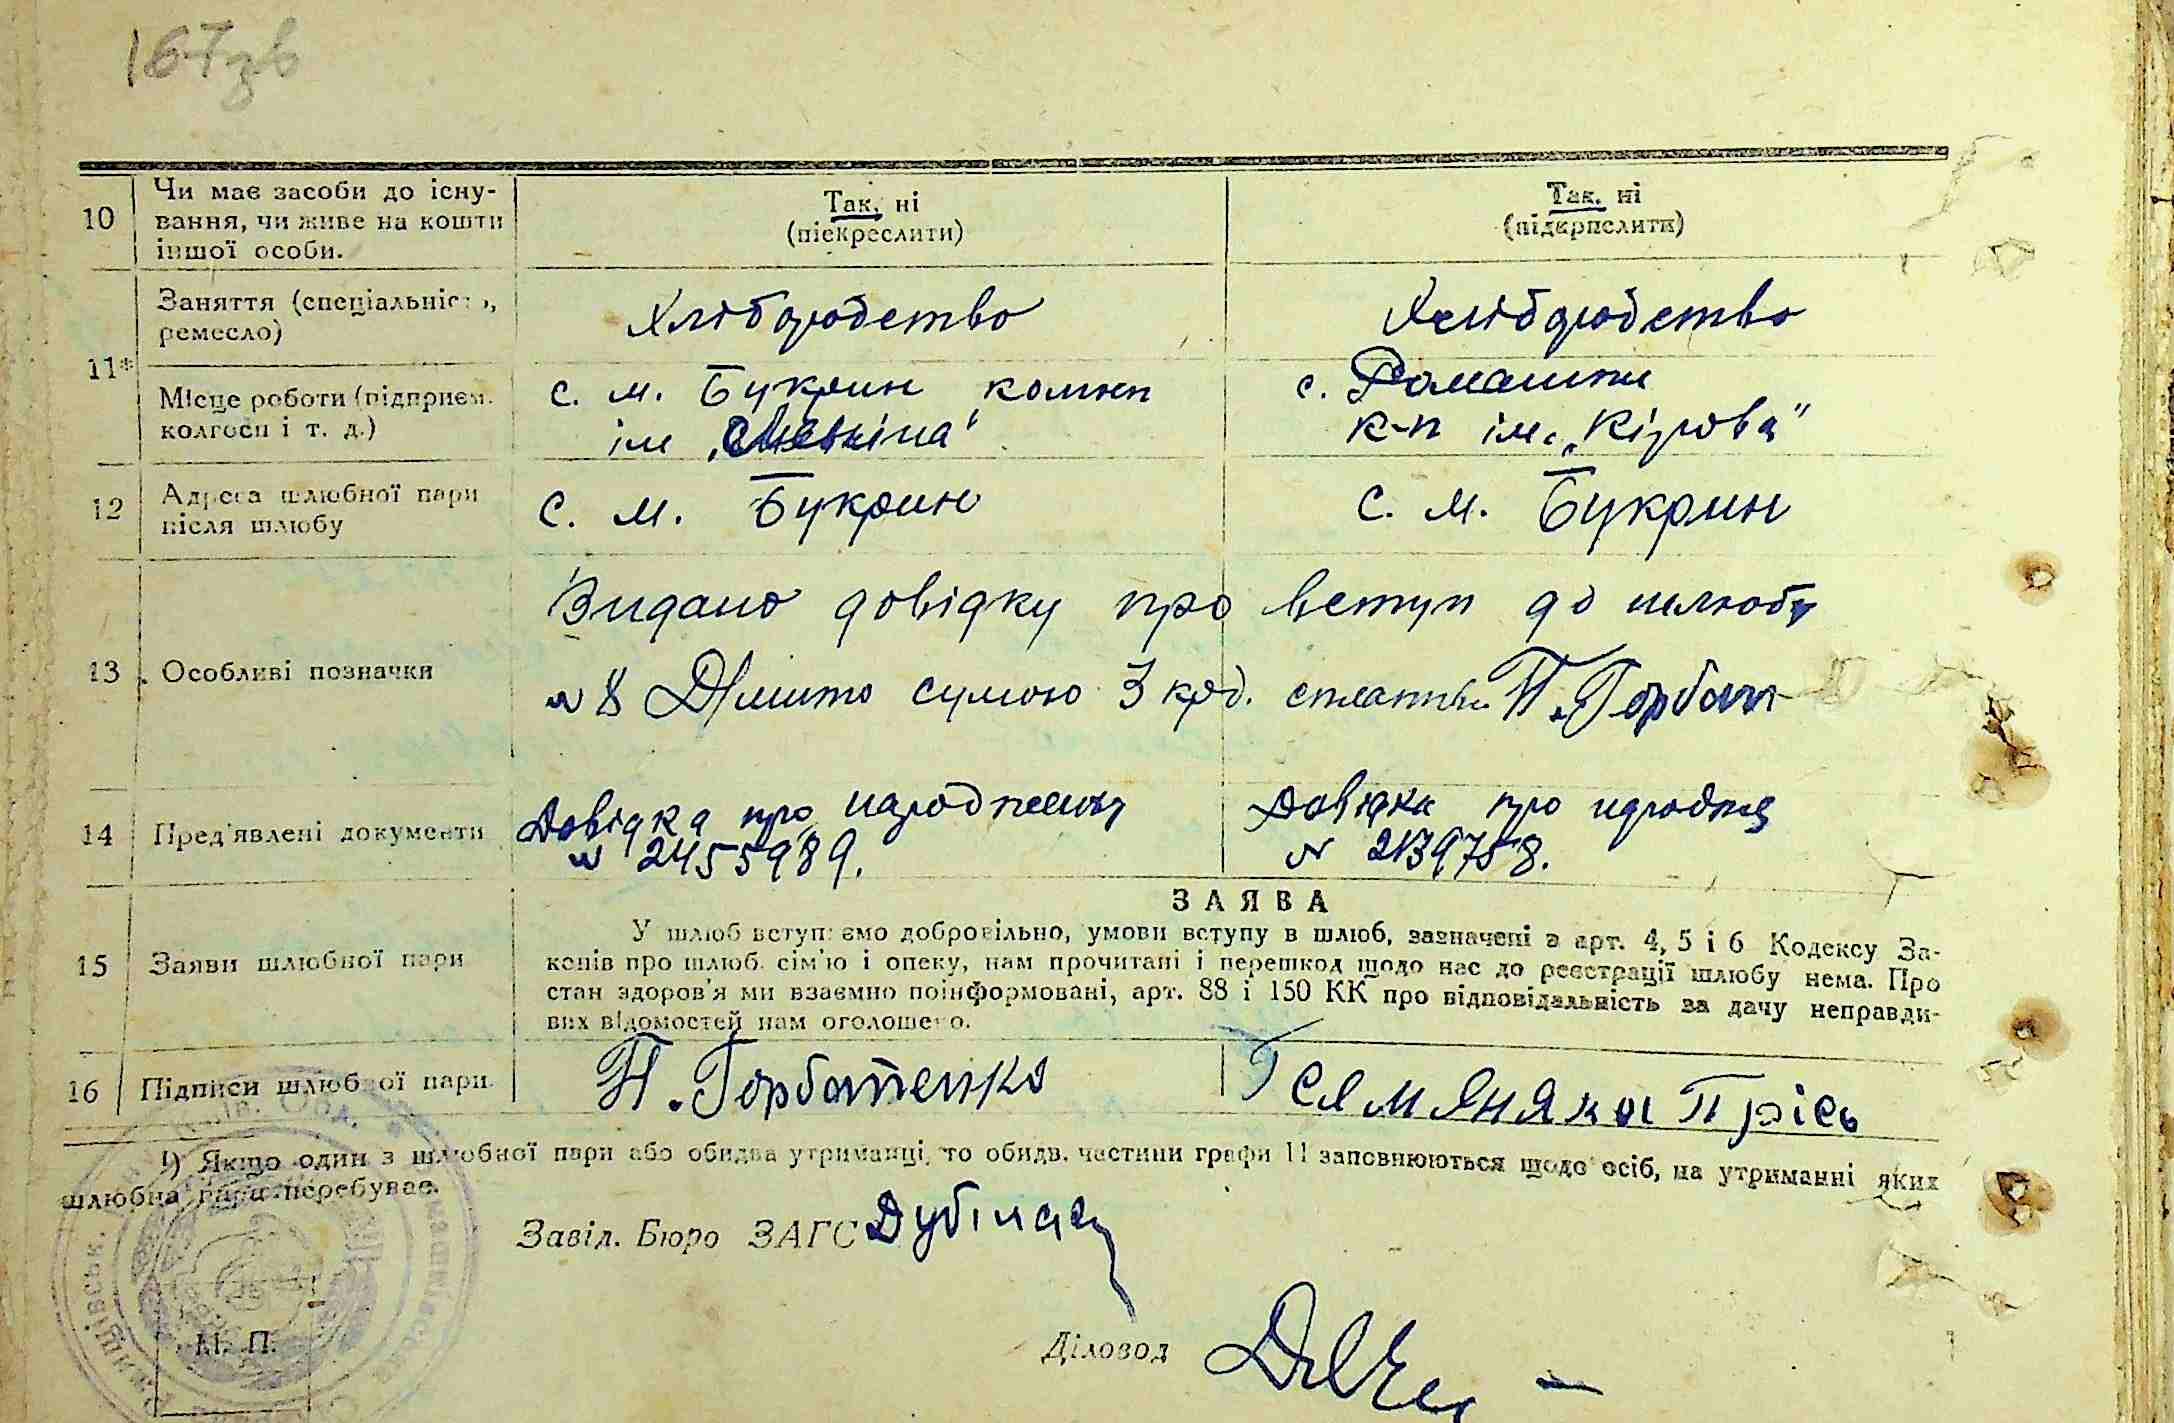 167зв
10 Чи має засоби до існу-
вання, чи живе на кошти
іншої особи.
Так, ні
(піекреслити)
Так. ні
(підкрпелити)
11* Заняття (спеціальніс ,
ремесло)
Хліборобство
Хліборобство
Місце роботи (підприєм.
колгосп і т. д.)
с. м. Букрин
ім
с. Ромашки
к-п ім. „Кірова"
12 Адреса шлюбної пари
після шлюбу
с. м. Букрин
с. м. Букрин
13 Особливі позначки
Видано довідку про вступ до шлюбу
№ 8 Мито сумою 3 крб. П. Горбат
14 Пред'явлені документи
Довідка про народження
№ 2455989.
Довідка про
№
15 Заяви шлюбної пари
ЗАЯВА
У шлюб вступаємо добровільно, умови вступу в шлюб, зазначені в арт. 4, 5 і 6 Кодексу За-
конів про шлюб. сім'ю і опеку, нам прочитані і перешкод щодо нас до реєстрації шлюбу нема. Про
стан здоров'я ми взаємно поінформовані, арт. 88 і 150 КК про відповідальність за дачу неправди-
вих відомостей нам оголошено.
16 Підписи шлюбної пари.
П. Горбатенко
Гелмяняка Прісь
¹) Якщо один з шлюбної пари або обидва утриманці, то обидв. частини графи 11 заповнюються щодо осіб, на утриманні яких
шлюбна пара перебуває.
Завід. Бюро ЗАГС
М. П.
Діловод